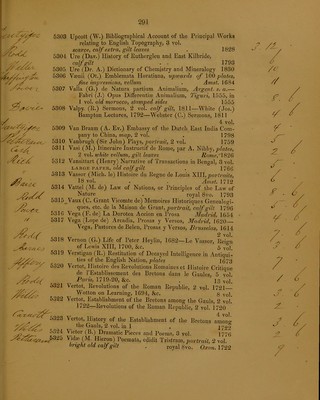 291
5303 Upcott (W.) Bibliographical Account of the Principal Works
relating to English Topography, 3 vol.
scarce, calf extra, gilt leaves 1828
5304 Ure (Dav.) History of Rutherglen and East Kilbride,
calf gilt 1793
5305 Ure (Dr. A.) Dictionary of Chemistry and Mineralogy 1830
5306 Vænii (Ot.) Emblemata Horatiana, upwards of 100 plates,
fine impressions, vellum Amst. 1684
5307 Valla (G.) de Natura partium Animalium, Argent. s. a.—
Fabri (J.) Opus Differentiæ Animalium, Viguet, 1555, in
1 vol. old morocco, stamped sides 1555
5308 Valpy (R.) Sermons, 2 vol. calf gilt, 1811—White (Jos.)
Hampton Lectures, 1792—Webster (C.) Sermons, 1811
4 vol.
5309 Van Braam (A. Ev.) Embassy of the Dutch East India Com-
pany to China, map, 2 vol. 1798
5310 Vanbrugh (Sir John) Plays, portrait, 2 vol. 1759
5311 Vasi (M.) Itineraire Instructif de Rome, par A. Nibby, plates,
2 vol. white vellum, gilt leaves Rome, 1826
5312 Vansittart (Henry) Narrative of Transactions in Bengal, 3 vol.
LARGE PAPER, old calf gilt 1766
5313 Vassor (Mich. le) Histoire du Regne de Louis XIII, portraits,
19 vol. Amst. 1712
5314 Vattel (M. de) Law of Nations, or Principles of the Law of
Nature royal 8vo. 1793
5315 Vaux (C. Grant Vicomte de) Memoires Historiques Genealogi-
ques, etc. de la Maison de Grant, portrait, calf gilt 1796
5316 Vega (F. de) La Dorotea Accion en Prosa Madrid, 1654
5317 Vega (Lope de) Arcadia, Prosas y Versos, Madrid, 1620—
Vega, Pastores de Belen, Prosas y Versos, Brusselas, 1614
2 vol.
5318 Vernon (G.) Life of Peter Heylin, 1682—Le Vassor, Reign
of Louis XIII, 1700, &c. 5 vol.
5319 Verstigan (R.) Restitution of Decayed Intelligence in Antiqui-
ties of the English Nation, plates 1673
5320 Vertot, Histoire des Revolutions Romaines et Histoire Critique
de l'Etablissement des Bretons dans le Gaules, 5 vol.
Paris, 1719-20, &c. 13 vol.
5321 Vertot, Revolutions of the Roman Republic, 2 vol. 1721—
Wotton on Learning, 1694, &c. 8 vol.
5322 Vertot, Establishment of the Bretons among the Gauls, 2 vol.
1722—Revolutions of the Roman Republic, 2 vol. 1720
4 vol.
5323 Vertot, History of the Establishment of the Bretons among
the Gauls, 2 vol. in 1 1722
5324 Victor (B.) Dramatic Pieces and Poems, 3 vol. 1776
5325 Vidæ (M. Hieron) Poemata, edidit Tristram, portrait, 2 vol.
bright old calf gilt royal 8vo. Oxon. 1722